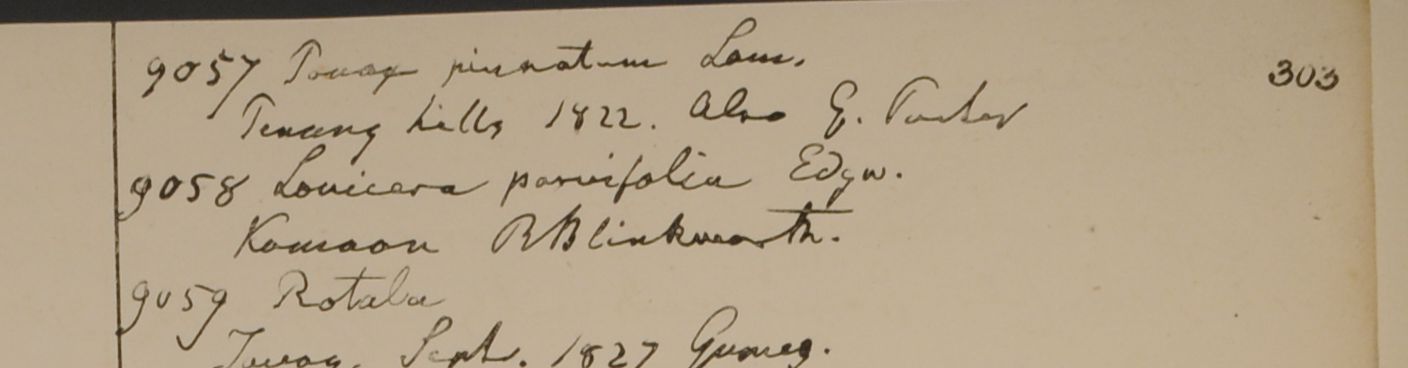 9057 Panax pinnatum Lam.
303
Penang hills 1822. Also G. Porter
9058 Lonicera parvifolia Edgw.
Kamaon RBlinkworth.
9059 Rotala
Tavoy, Sept. 1827 Gomez.